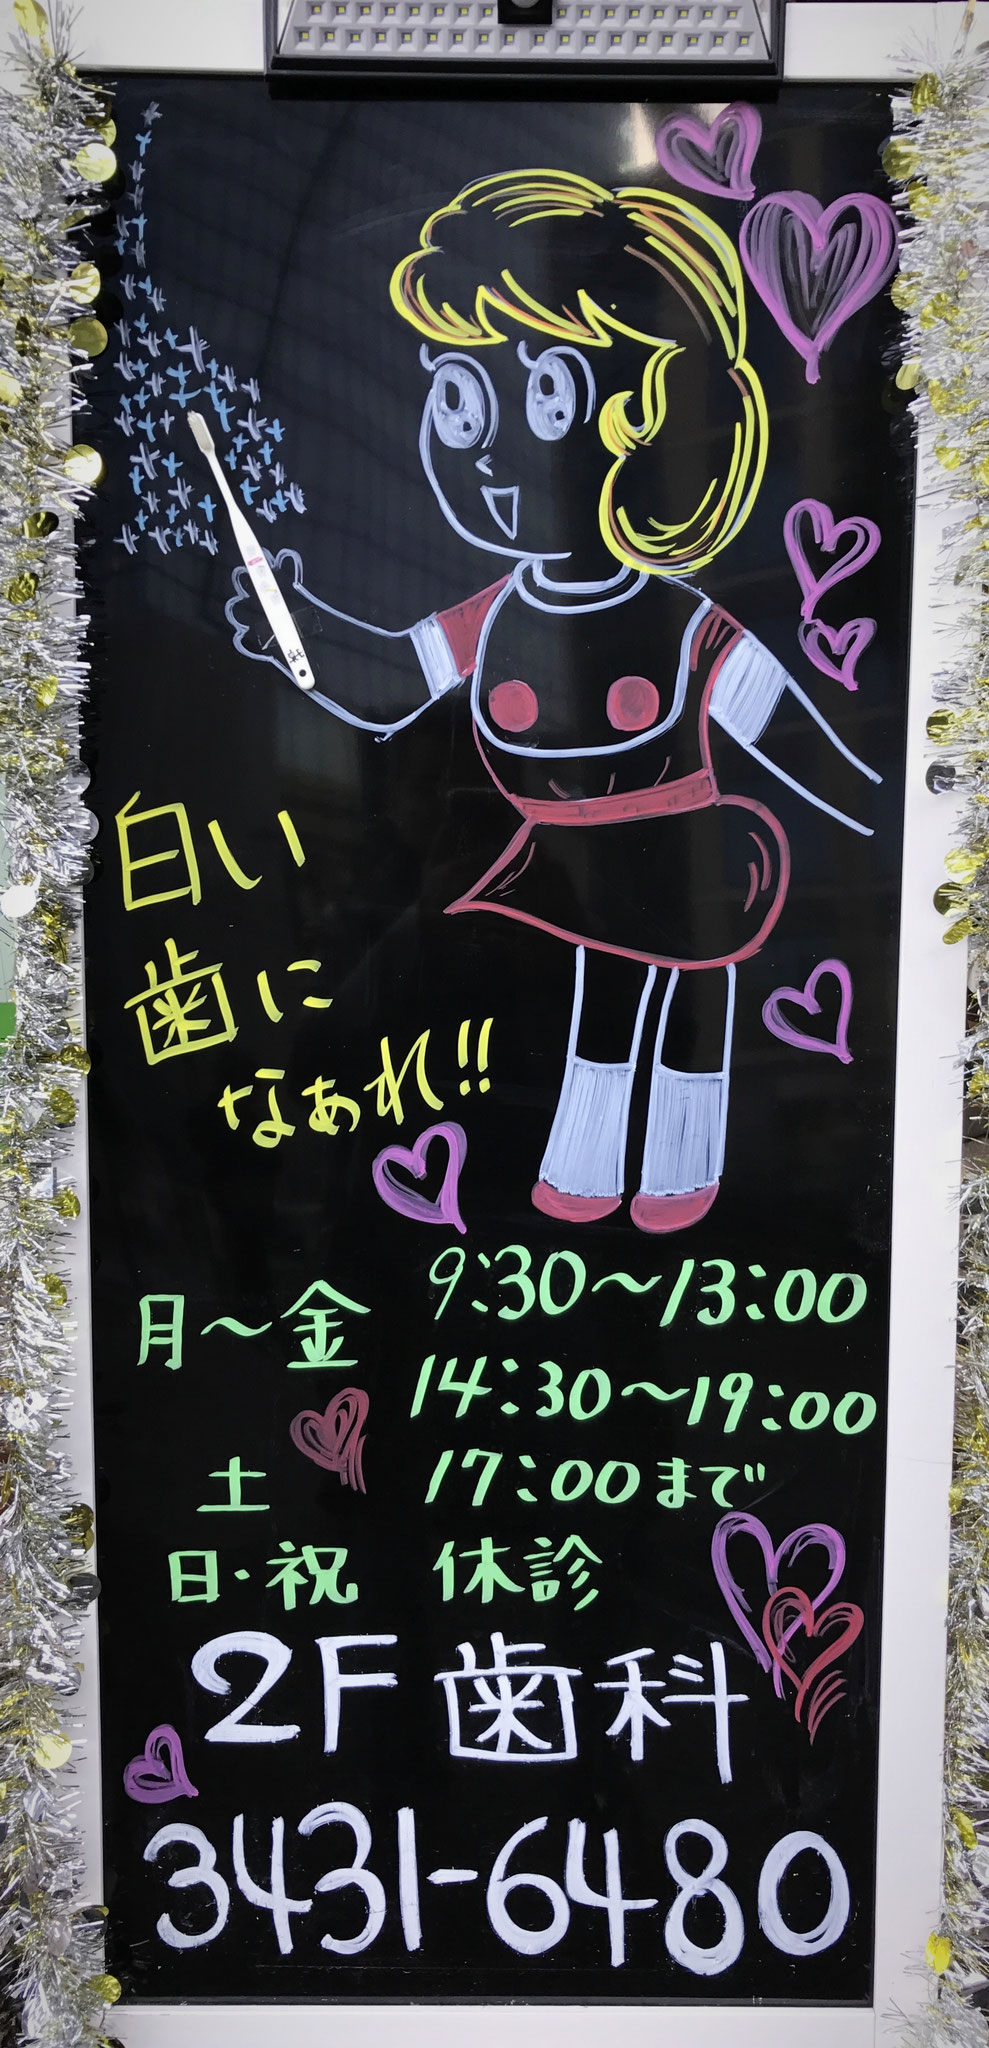 白い
歯に
なぁれ!!
月～金 9:30～13:00
14:30～19:00
土 17:00まで
日・祝 休診
2F歯科
3431-6480